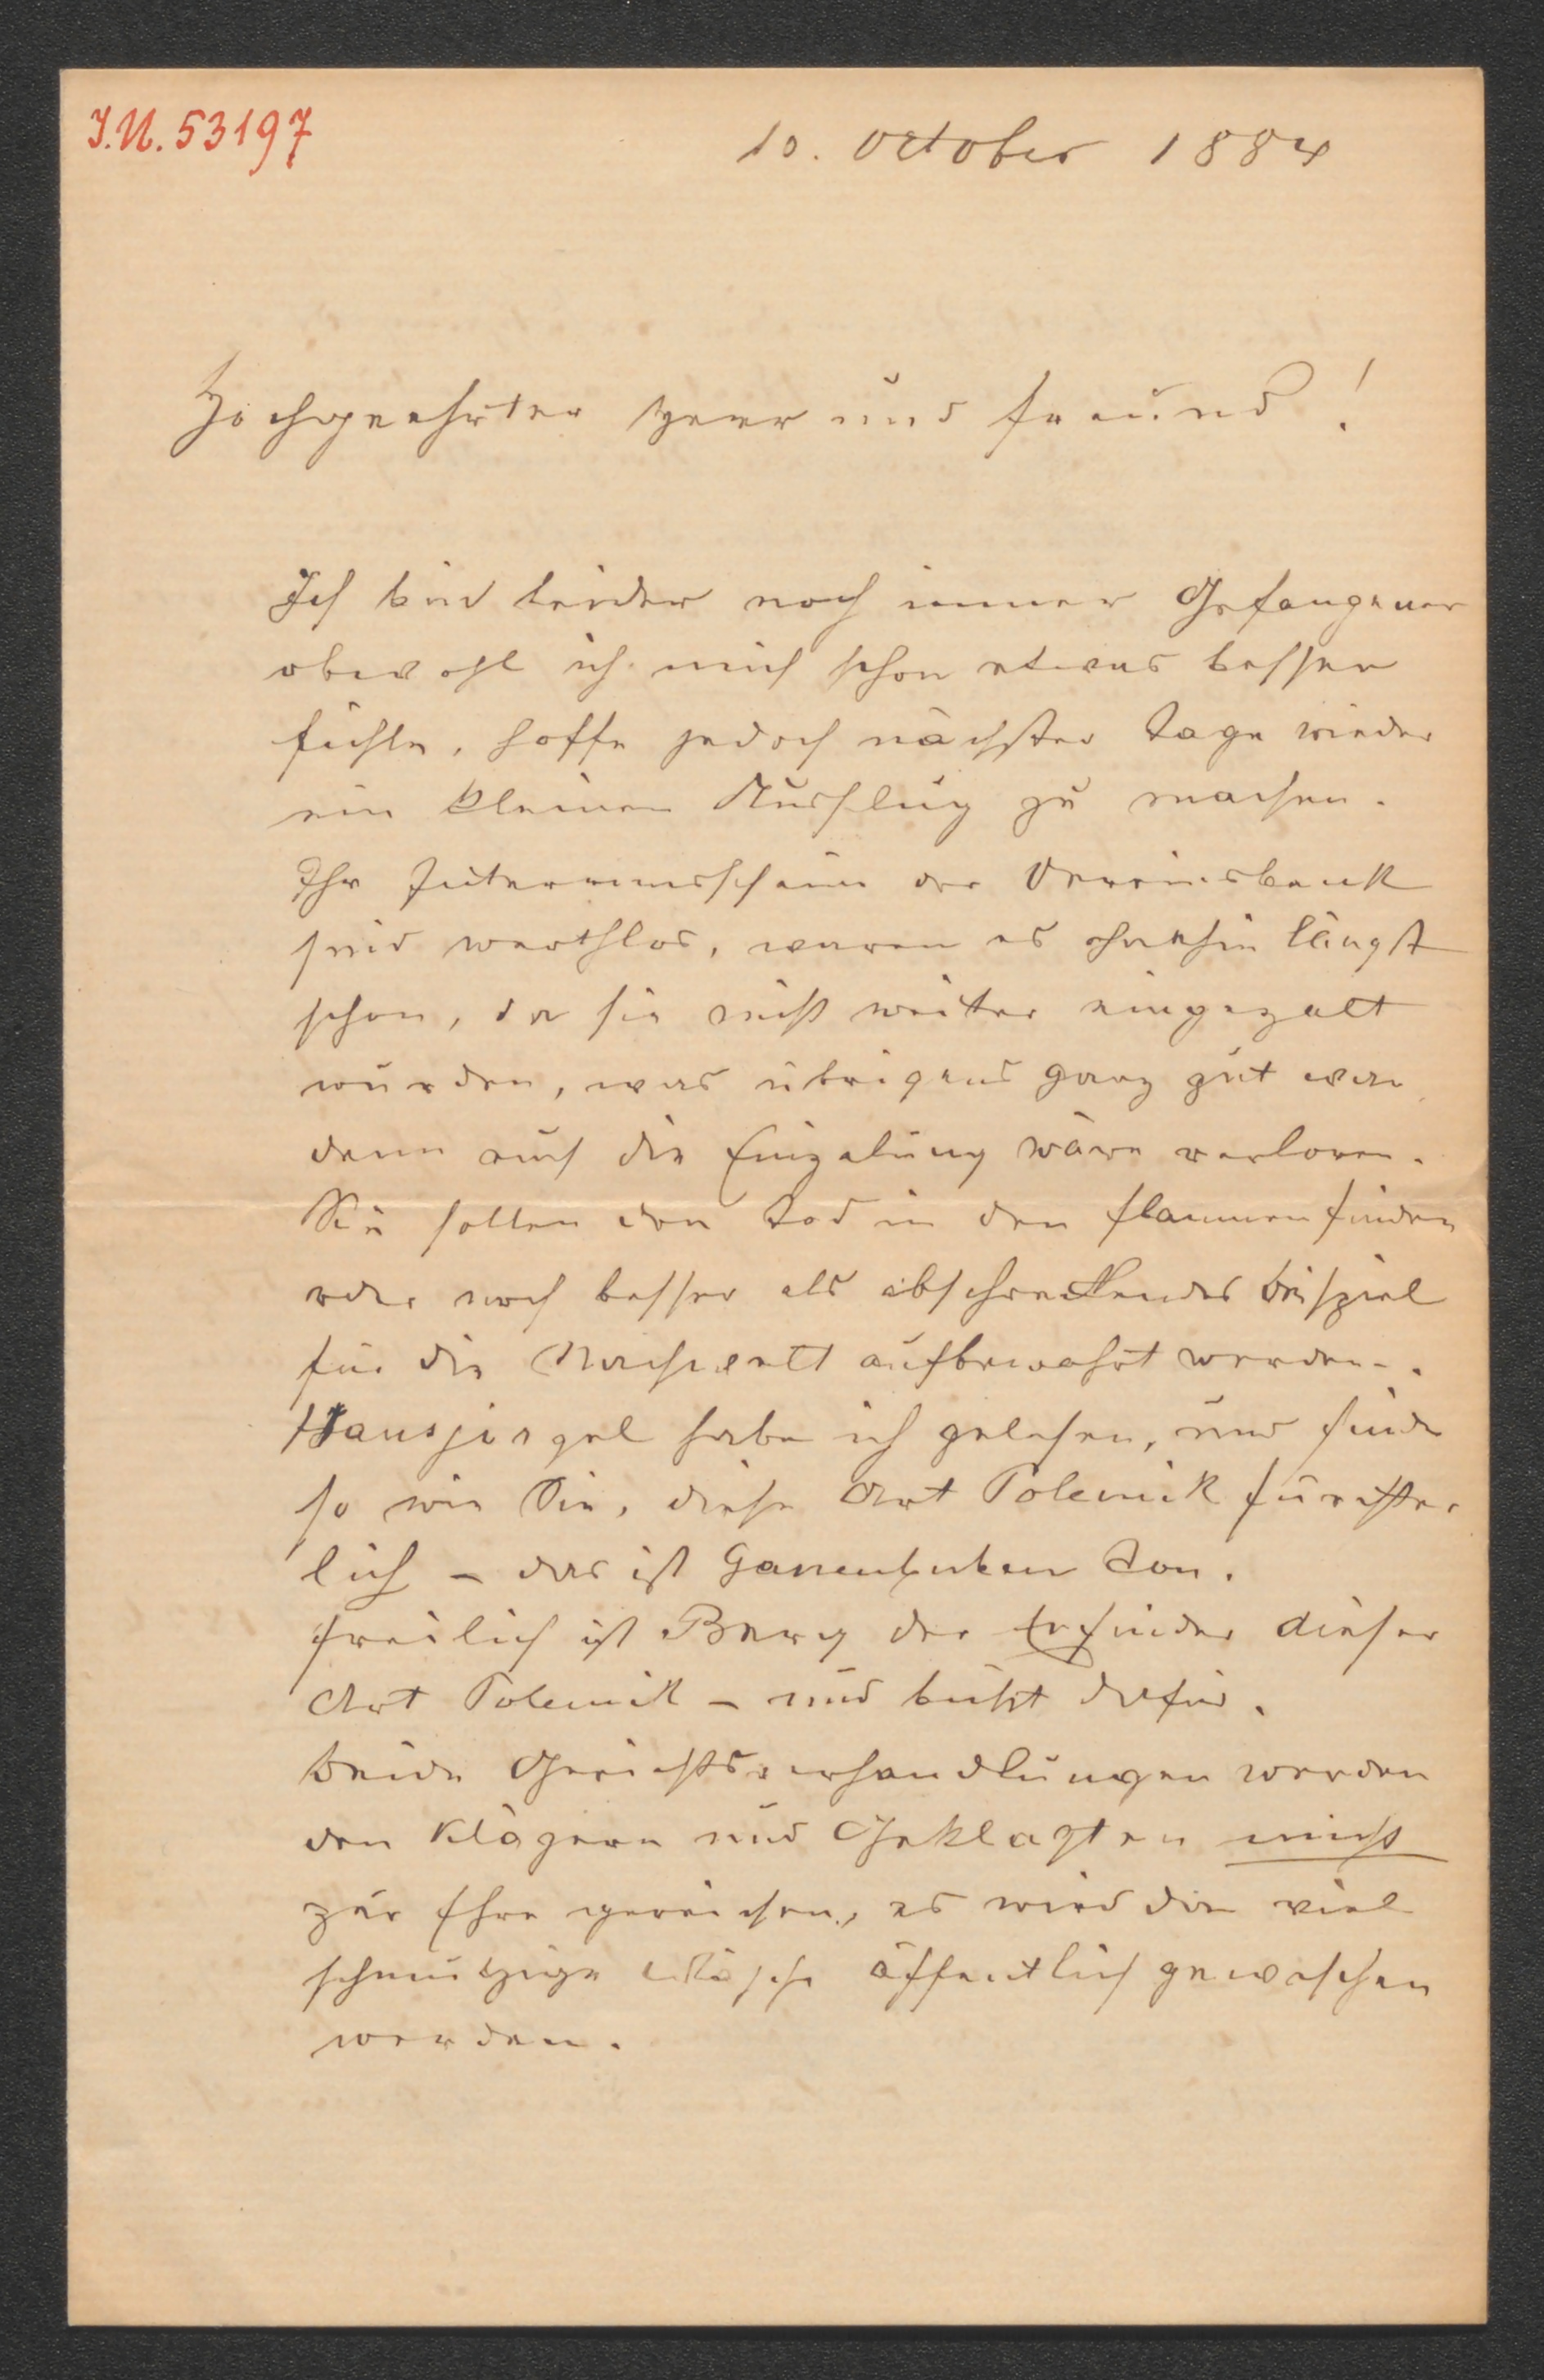 J.N. 53197
10. October 1884
Hochgeehrter Herr und Freund!
Ich bin leider noch immer Gefangener
obwohl ich mich schon etwas besser
fühle, hoffe jedoch nächster Tage wieder
ein kleinen Ausflug zu machen.
Ihr Interimsschein der Vereinsbank
sind werthlos, waren es ohnehin längst
schon, da sie nicht weiter eingezalt
wurden, was übrigens ganz gut war
denn auch die Einzalung wäre verloren.
Sie sollen den Tod in den Flammen finden
oder noch besser als abschreckendes Beispiel
für die Nachwelt aufbewahrt werden.
Hansjörgel habe ich gelesen, und finde
so wie Sie, diese Art Polemik fürchter
lich – das ist Gassenbuben Ton.
Freilich ist Berg der Erfinder dieser
Art Polemik – und büßt dafür.
Beide Gerichtsverhandlungen werden
den Klägern und Geklagten nicht
zur Ehre gereichen, es wird da viel
schmutzige Wäsche öffentlich gewaschen
werden.